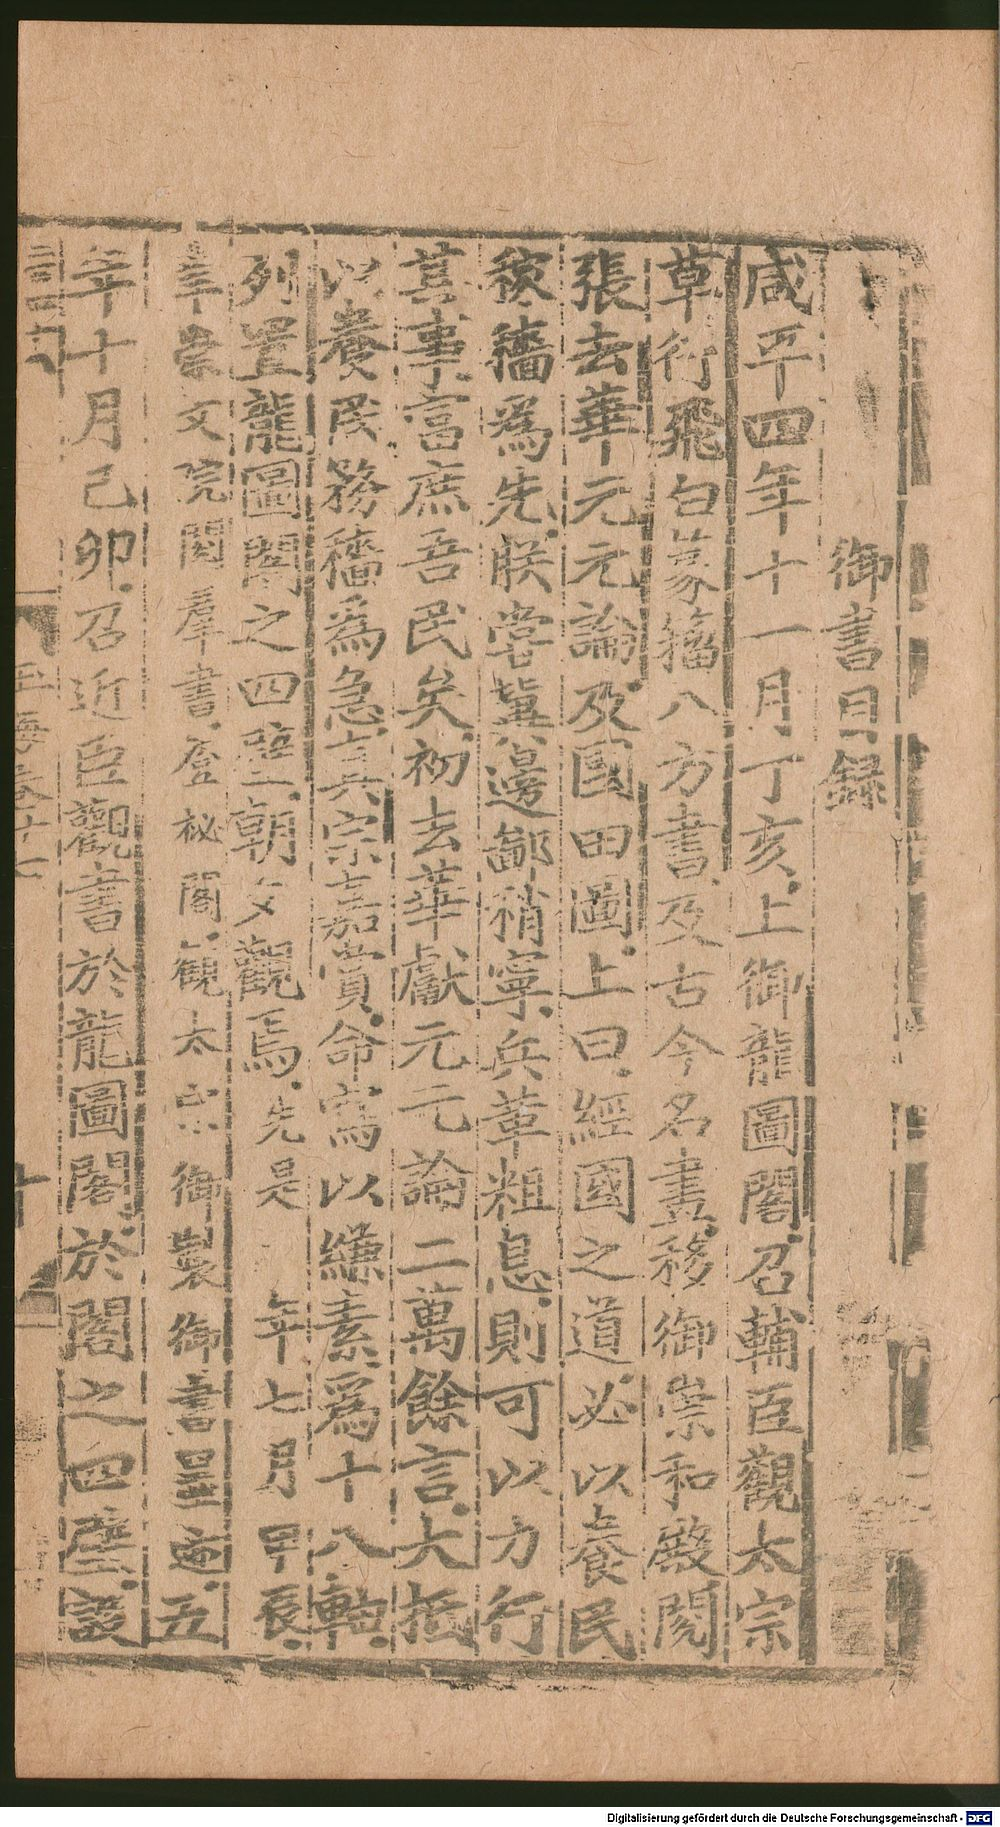 御書目錄
咸平四年十一月丁亥上御龍圖閣召輔臣觀太宗
草行飛白篆籀八方書及古今名畫移御崇和殿閱
張去華元元論及國田圖上曰經國之道必以養民
稼穡爲先朕嘗冀邊鄙稍寧兵革粗息則可以力行
其事富庶吾民矣初去華獻元元論二萬餘言大抵
以養民務穡爲急真宗嘉賞命寫以縑素爲十八軸
列置龍圖閣之四壁二朝夕觀焉先是 年七月甲辰
幸崇文院閱羣書登祕閣觀太宗御製御書墨迹五
年十月己卯召近臣觀書於龍圖閣於閣之四壁設
玉海卷廿七
Digitalisierung gefördert durch die Deutsche Forschungsgemeinschaft - DFG